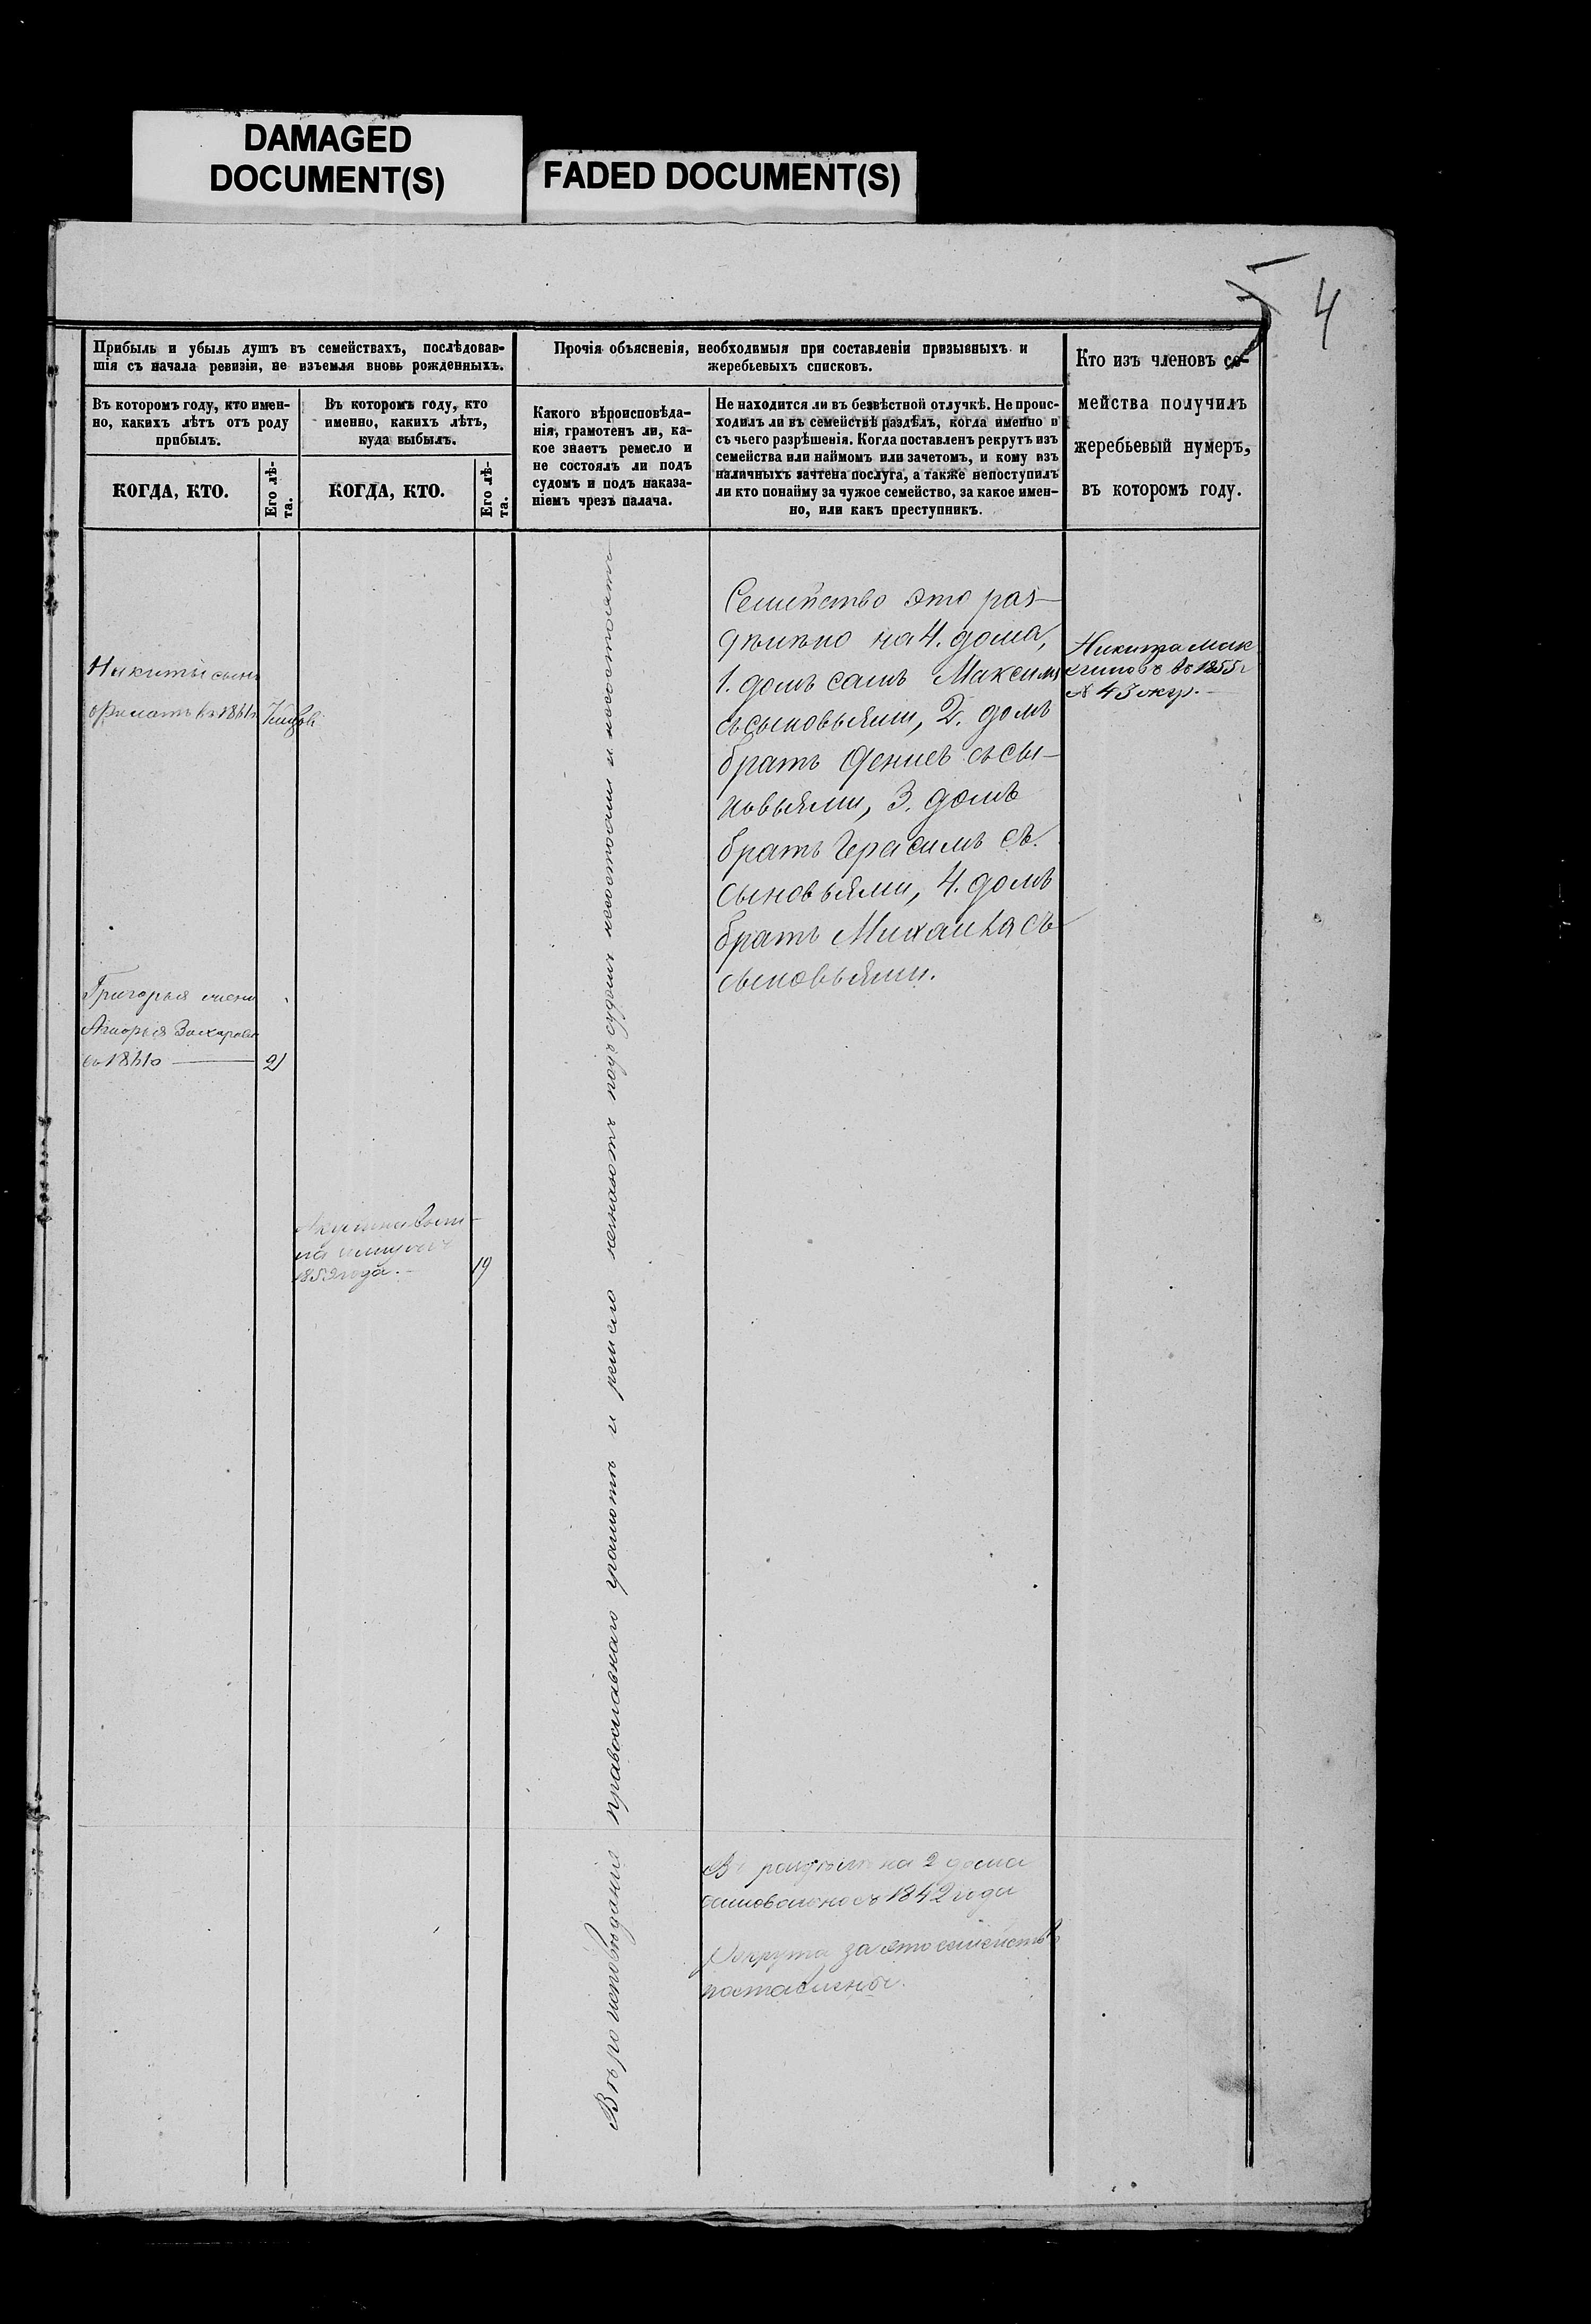 DAMAGED
DOCUMENT(S)
FADED DOCUMENT(S)
4
Прибыль и убыль душъ въ семействахъ, послѣдовав-
шія съ начала ревизіи, не изъемля вновь рожденныхъ.
Въ которомъ году, кто имен-
но, какихъ лѣтъ отъ роду
прибылъ.
КОГДА, КТО.
Его лѣ-
та.
Въ которомъ году, кто
именно, какихъ лѣтъ,
куда выбылъ.
КОГДА, КТО.
Его лѣ-
та.
Прочія объясненія, необходимыя при составленіи призывныхъ и
жеребьевыхъ списковъ.
Какого вѣроисповѣда-
нія, грамотенъ ли, ка-
кое знаетъ ремесло и
не состоялъ ли подъ
судомъ и подъ наказа-
ніемъ чрезъ палача.
Не находится ли въ безвѣстной отлучкѣ. Не проис-
ходилъ ли въ семействѣ раздѣлъ, когда именно и
съ чьего разрѣшенія. Когда поставленъ рекрутъ изъ
семейства или наймомъ или зачетомъ, и кому изъ
наличныхъ зачтена послуга, а также непоступилъ
ли кто понайму за чужое семейство, за какое имен-
но, или какъ преступникъ.
Кто изъ членовъ се-
мейства получилъ
жеребьевый нумеръ,
въ которомъ году.
Никиты сынъ
въ 1861
Григорья
Захарова
1861
21
1859 года.
19
Вѣроисповѣданія православнаго грамотѣ и ремесло незнаютъ подъ судомъ несостояли и несостоятъ
Семейство это раз-
дѣлено на 4. дома,
1. домъ самъ Максимъ
съ сыновьями, 2. домъ
братъ Денисъ съ сы-
новьями, 3. домъ
братъ Герасимъ съ
сыновьями, 4. домъ
братъ Михаила съ
сыновьями.
на 2 дома
1842 года
Рекрута за это семейство
поставлены.
Никита Мак
симовъ въ 1855 г
№ 43 жер.